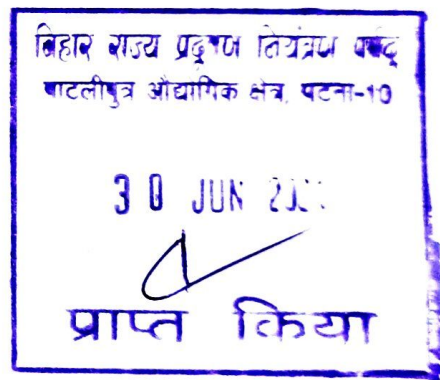 बिहार राज्य प्रदूषण नियंत्रण पर्षद्
पाटलीपुत्र औद्योगिक क्षेत्र, पटना-10
30 JUN
प्राप्त किया